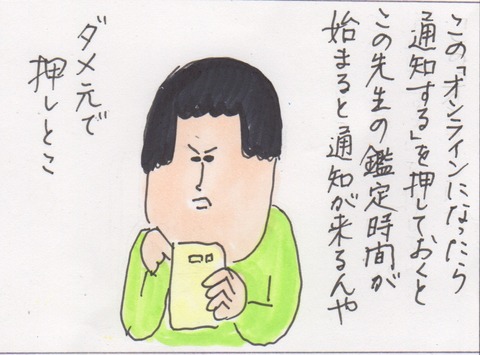 この「オンラインになったら
通知する」を押しておくと
この先生の鑑定時間が
始まると通知が来るんや
ダメ元で
押しとこ